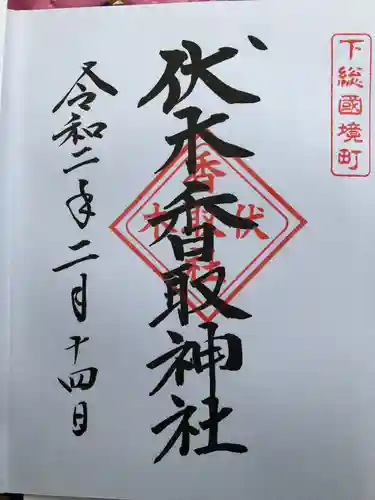 下総國境町
伏木香取神社
伏木香取社
令和二年二月十四日